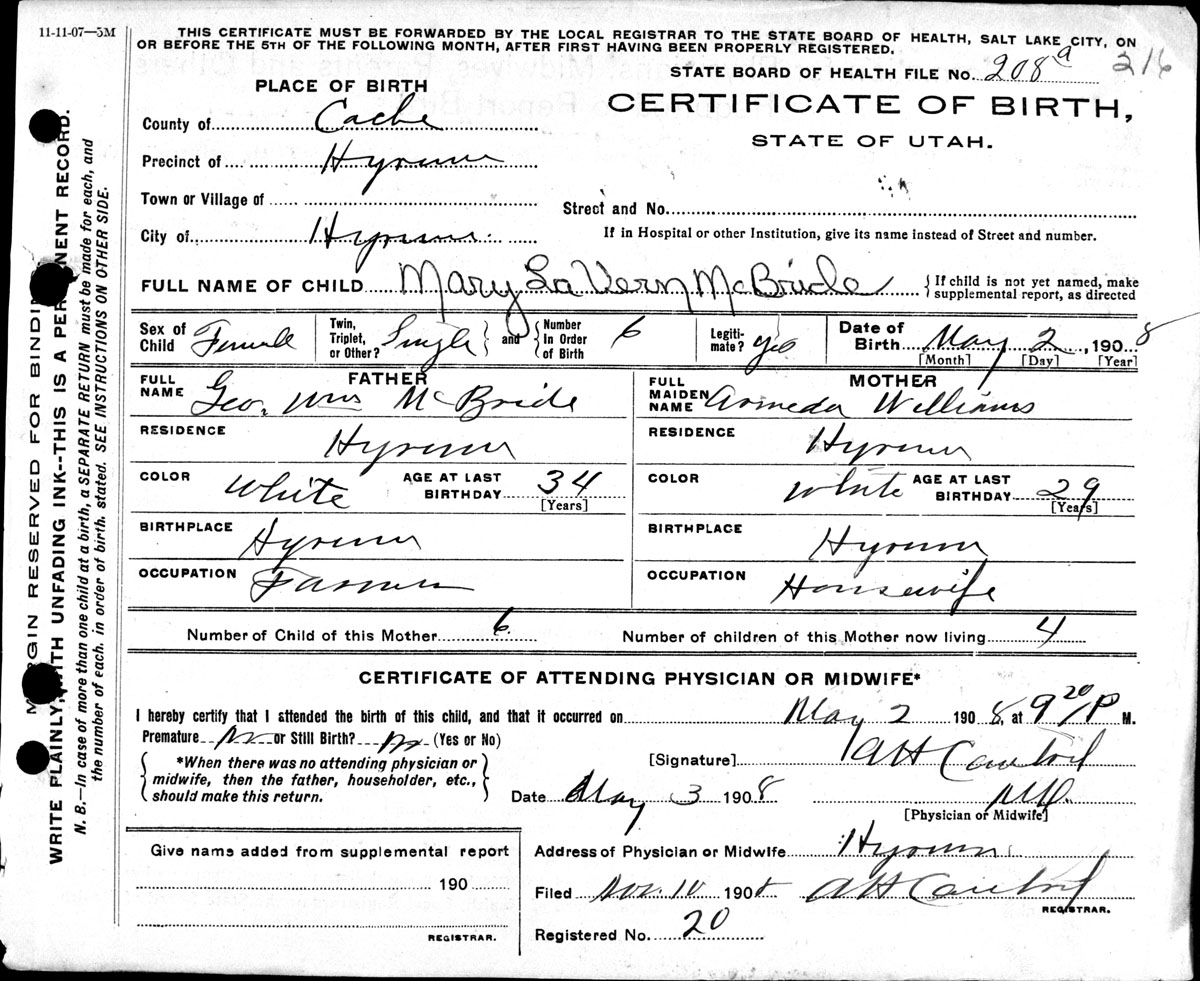 11-11-07—5M
THIS CERTIFICATE MUST BE FORWARDED BY THE LOCAL REGISTRAR TO THE STATE BOARD OF HEALTH, SALT LAKE CITY, ON
OR BEFORE THE 5TH OF THE FOLLOWING MONTH, AFTER FIRST HAVING BEEN PROPERLY REGISTERED.
STATE BOARD OF HEALTH FILE No. 208a 216
PLACE OF BIRTH
CERTIFICATE OF BIRTH,
STATE OF UTAH.
County of Cache
Precinct of Hyrum
Town or Village of
Street and No.
City of Hyrum
If in Hospital or other Institution, give its name instead of Street and number.
FULL NAME OF CHILD Mary LaVern McBride { If child is not yet named, make
supplemental report, as directed
Sex of Child Female
Twin, Triplet, or Other? Single } and { Number In Order of Birth 6
Legiti-mate? yes
Date of Birth May 2, 1908
[Month] [Day] [Year]
FATHER
FULL NAME Geo. Wm McBride
MOTHER
FULL MAIDEN NAME Armeda Williams
RESIDENCE Hyrum
RESIDENCE Hyrum
COLOR White AGE AT LAST BIRTHDAY 34 [Years]
COLOR White AGE AT LAST BIRTHDAY 29 [Years]
BIRTHPLACE Hyrum
BIRTHPLACE Hyrum
OCCUPATION Farmer
OCCUPATION Housewife
Number of Child of this Mother 6
Number of children of this Mother now living 4
CERTIFICATE OF ATTENDING PHYSICIAN OR MIDWIFE*
I hereby certify that I attended the birth of this child, and that it occurred on May 2 1908, at 9 20/ P M.
Premature No or Still Birth? No (Yes or No)
*When there was no attending physician or
midwife, then the father, householder, etc.,
should make this return.
[Signature] AH
Date May 3 1908
MD.
[Physician or Midwife]
Give name added from supplemental report
190
REGISTRAR.
Address of Physician or Midwife Hyrum
Filed Nov. 10 1908 AH
REGISTRAR.
Registered No. 20
MARGIN RESERVED FOR BINDING
WRITE PLAINLY, WITH UNFADING INK--THIS IS A PERMANENT RECORD.
N. B.—In case of more than one child at a birth, a SEPARATE RETURN must be made for each, and
the number of each, in order of birth, stated. SEE INSTRUCTIONS ON OTHER SIDE.